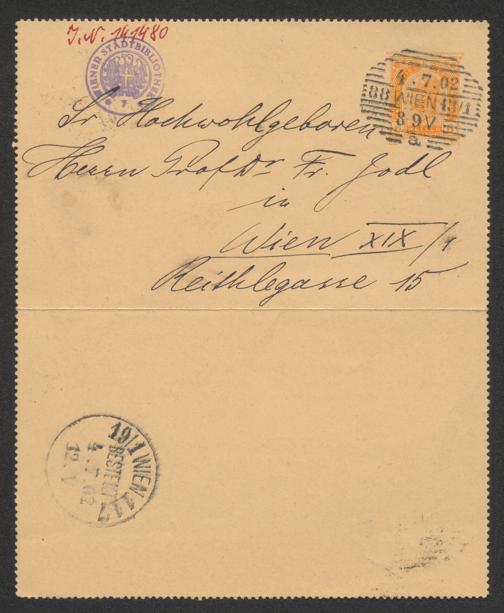 J.N. 141480
WIENER STADTBIBLIOTHEK
4.7.02
88 WIEN 13/1
8-9V
a
Sr Hochwohlgeboren
Herrn Prof Dr Fr. Jodl
in
Wien XIX/1
Reithlegasse 15
19/1 WIEN 117
BESTELLT
4.7.02
12.V